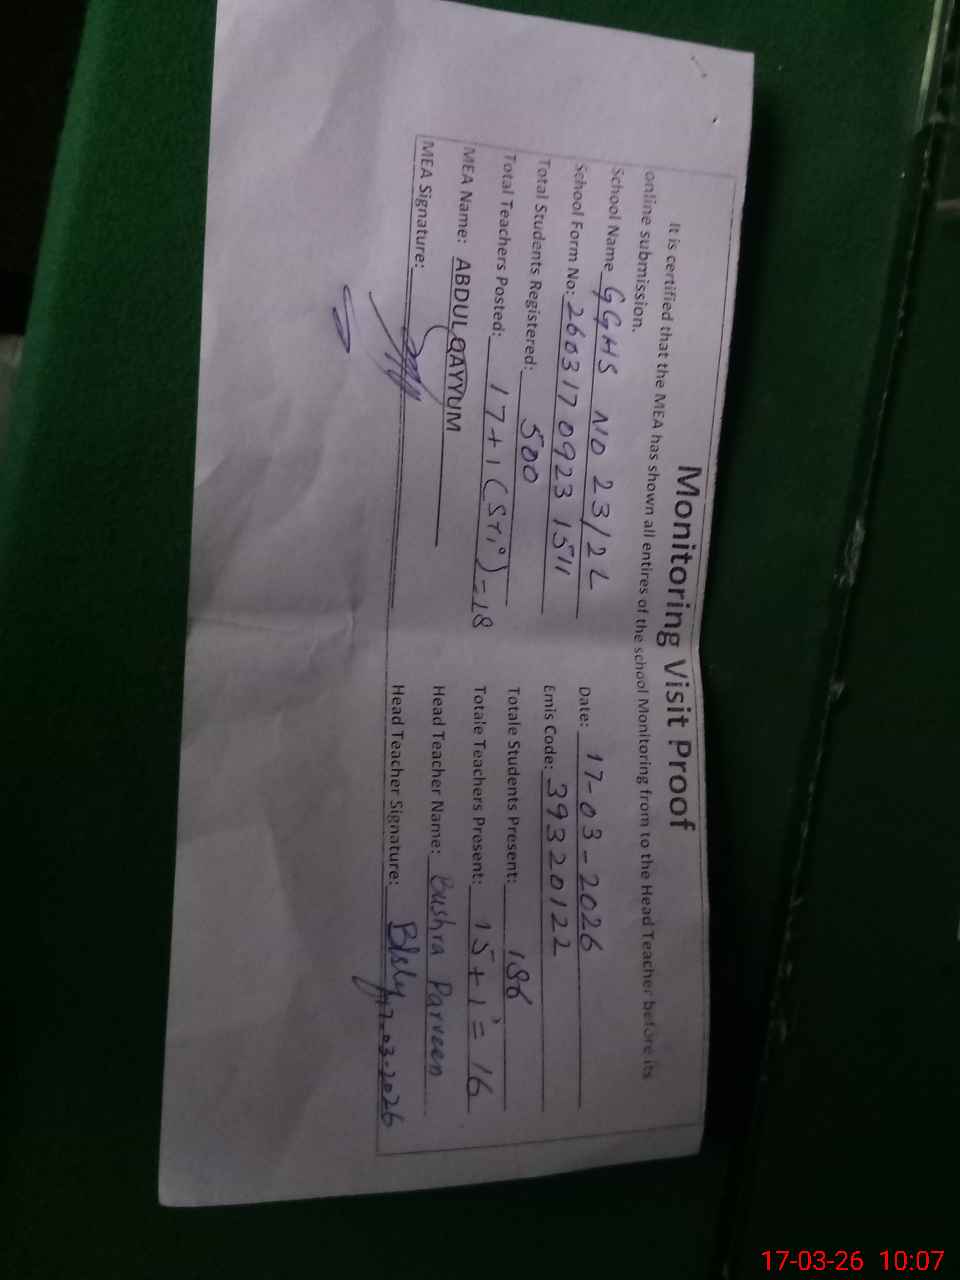 Monitoring Visit Proof
It is certified that the MEA has shown all entires of the school Monitoring from to the Head Teacher before its
online submission.
School Name GGHS NO 23/2L Date: 17-03-2026
School Form No: 260317 0923 1511 Emis Code: 39320122
Total Students Registered: 500 Totale Students Present: 186
Total Teachers Posted: 17+1(STi)=18 Totale Teachers Present: 15+1=16
MEA Name: ABDUL QAYYUM Head Teacher Name: Bushra Parveen
MEA Signature: Head Teacher Signature: 17-03-2026
17-03-26 10:07